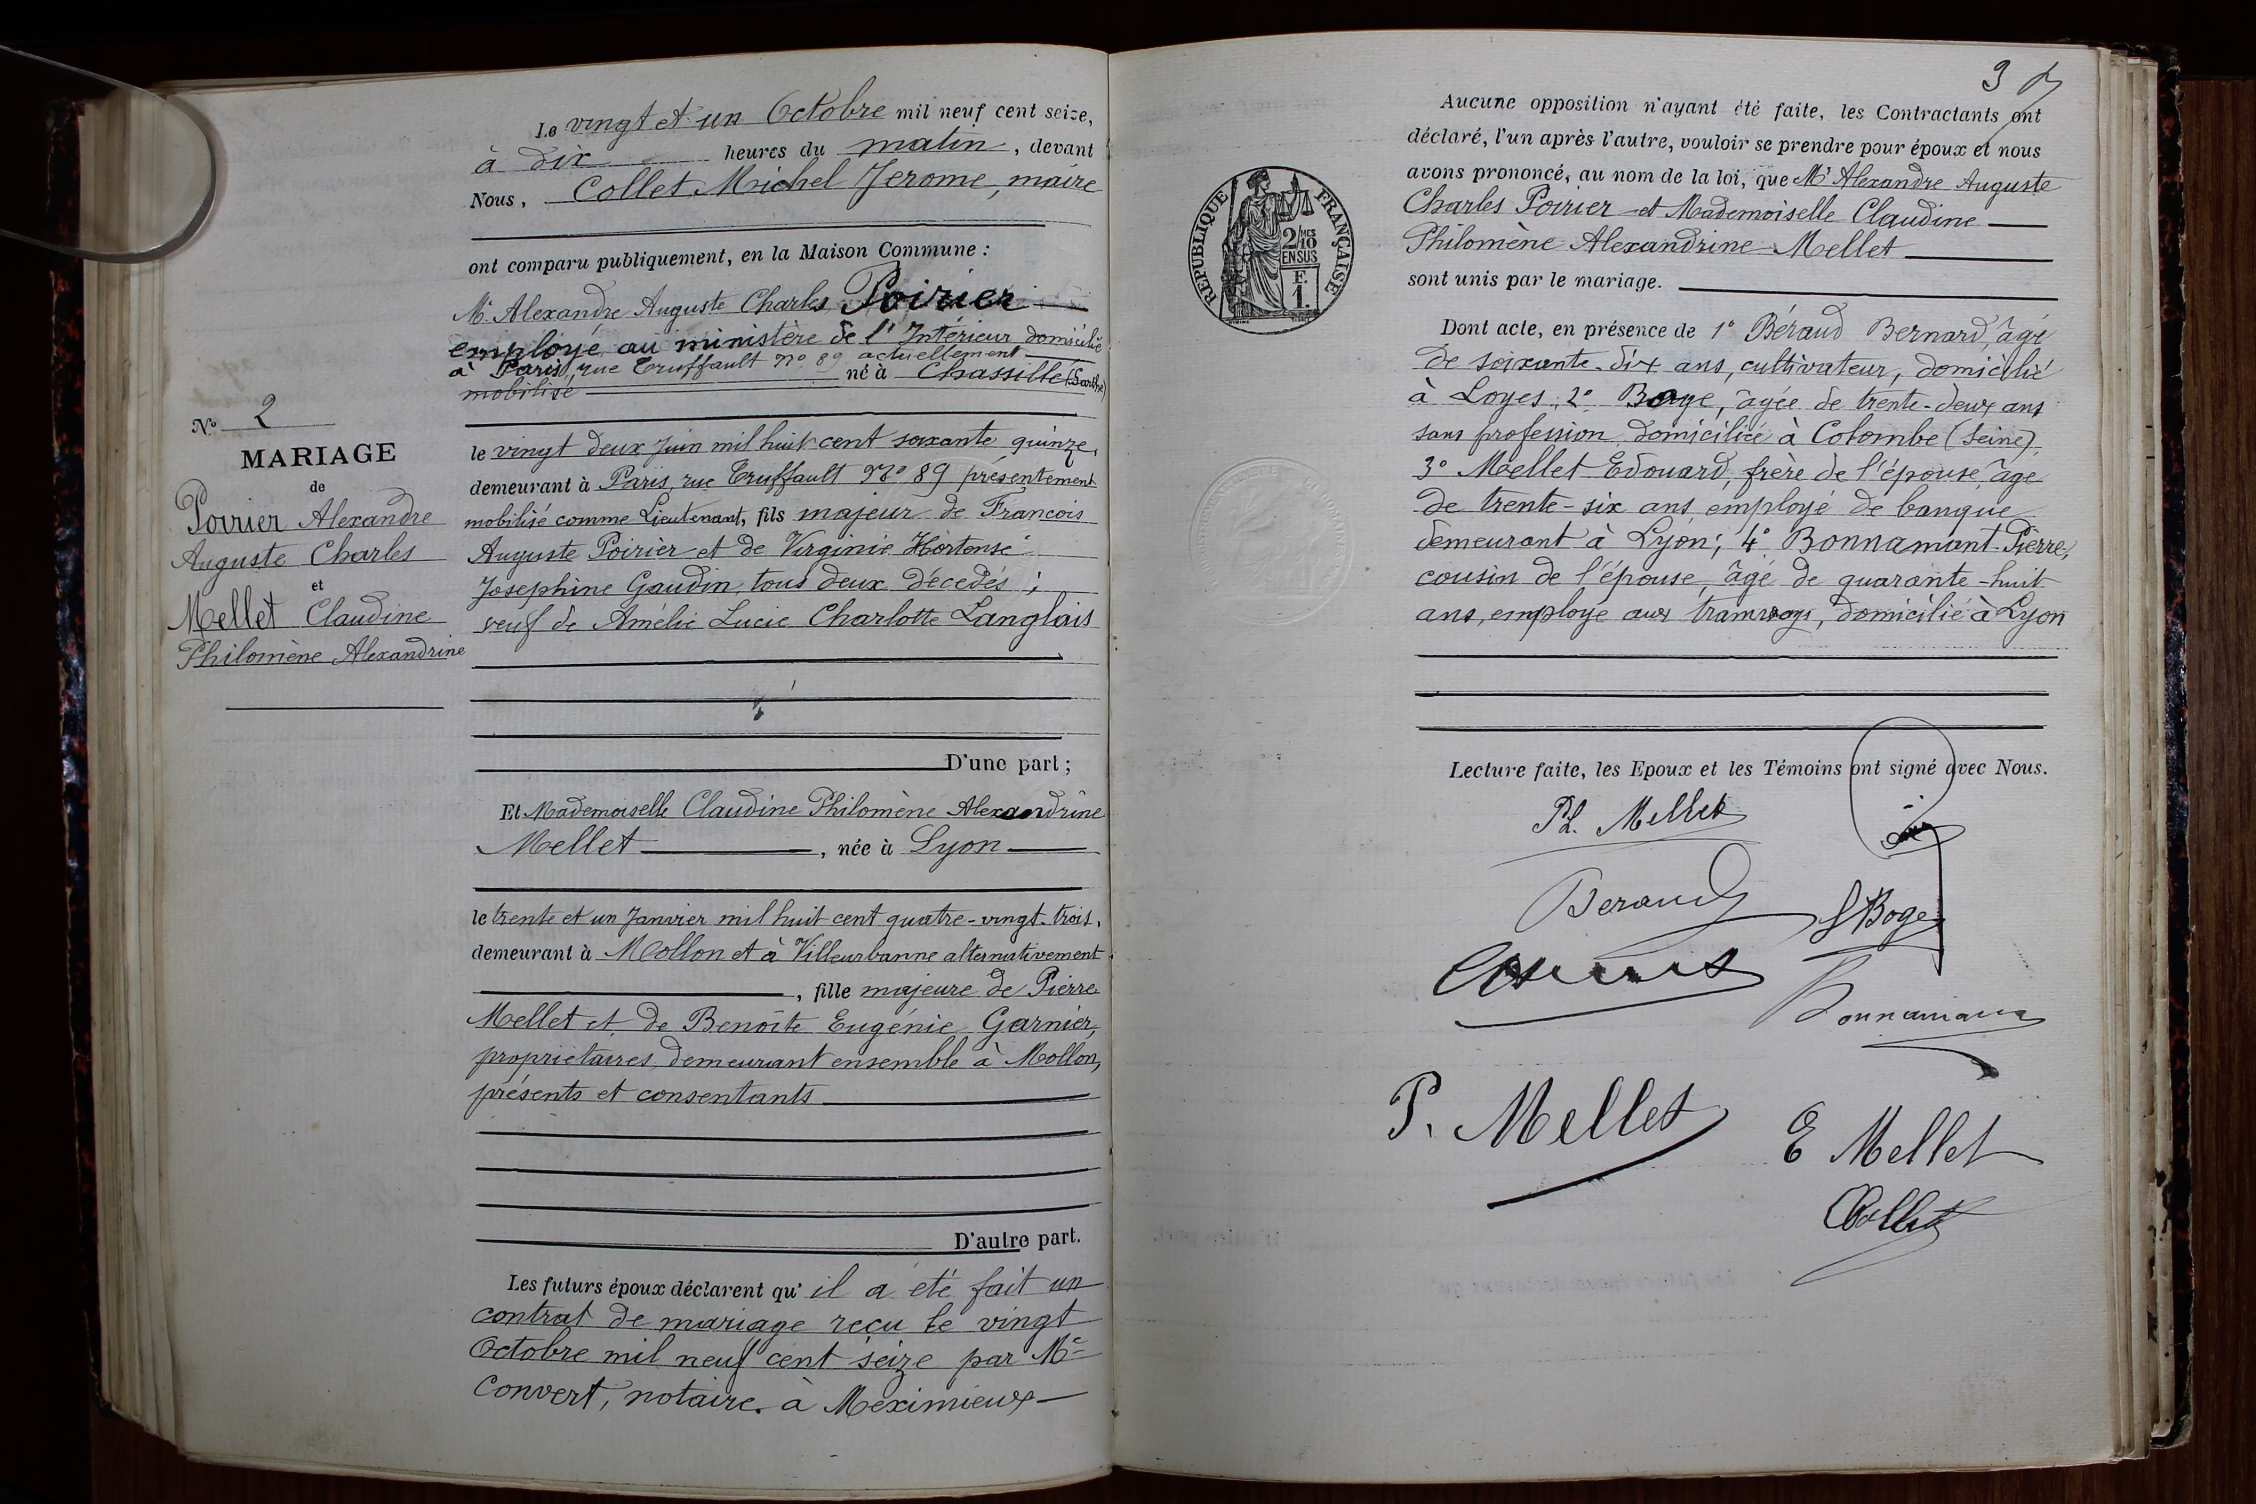 Le vingt et un Octobre mil neuf cent seize,
à dix heures du matin, devant
Nous, Collet Michel Jerome, maire
ont comparu publiquement, en la Maison Commune :
Mr Alexandre Auguste Charles Poirier
employé au ministère de l'Intérieur domicilié
à Paris, rue Truffault No 89 actuellement
mobilisé né à Chassillé (Sarthe)
No 2
MARIAGE
de
Poirier Alexandre
Auguste Charles
et
Mellet Claudine
Philomène Alexandrine
le vingt deux Juin mil huit cent soixante quinze,
demeurant à Paris, rue Truffault No 89 présentement
mobilisé comme Lieutenant, fils majeur de François
Auguste Poirier et de Virginie Hortense
Josephine Gaudin, tous deux décedés ;
veuf de Amélie Lucie Charlotte Langlais
D'une part ;
Et Mademoiselle Claudine Philomène Alexandrine
Mellet, née à Lyon
le trente et un Janvier mil huit cent quatre-vingt-trois,
demeurant à Mollon et à Villeurbanne alternativement
, fille majeure de Pierre
Mellet et de Benoîte Eugénie Garnier,
propriétaires, demeurant ensemble à Mollon,
présents et consentants
D'autre part.
Les futurs époux déclarent qu' il a été fait un
contrat de mariage reçu le vingt
Octobre mil neuf cent seize par Me
Convert, notaire à Meximieux
3
Aucune opposition n'ayant été faite, les Contractants ont
déclaré, l'un après l'autre, vouloir se prendre pour époux et nous
avons prononcé, au nom de la loi, que Mr Alexandre Auguste
Charles Poirier et Mademoiselle Claudine
Philomène Alexandrine Mellet
sont unis par le mariage.
RÉPUBLIQUE FRANÇAISE
2/10 MES
EN SUS
F.
1.
Dont acte, en présence de 1° Béraud Bernard, âgé
de soixante-dix ans, cultivateur, domicilié
à Loyes, 2° Boge, âgée de trente-deux ans
sans profession, domiciliée à Colombe (Seine),
3° Mellet Edouard, frère de l'épouse, âgé
de trente-six ans, employé de banque
demeurant à Lyon; 4° Bonnamant Pierre,
cousin de l'épouse, âgé de quarante-huit
ans, employé aux tramways, domicilié à Lyon
Lecture faite, les Epoux et les Témoins ont signé avec Nous.
Ph. Mellet
Beraud
Boge
Bonnamant
P. Mellet
E Mellet
Collet